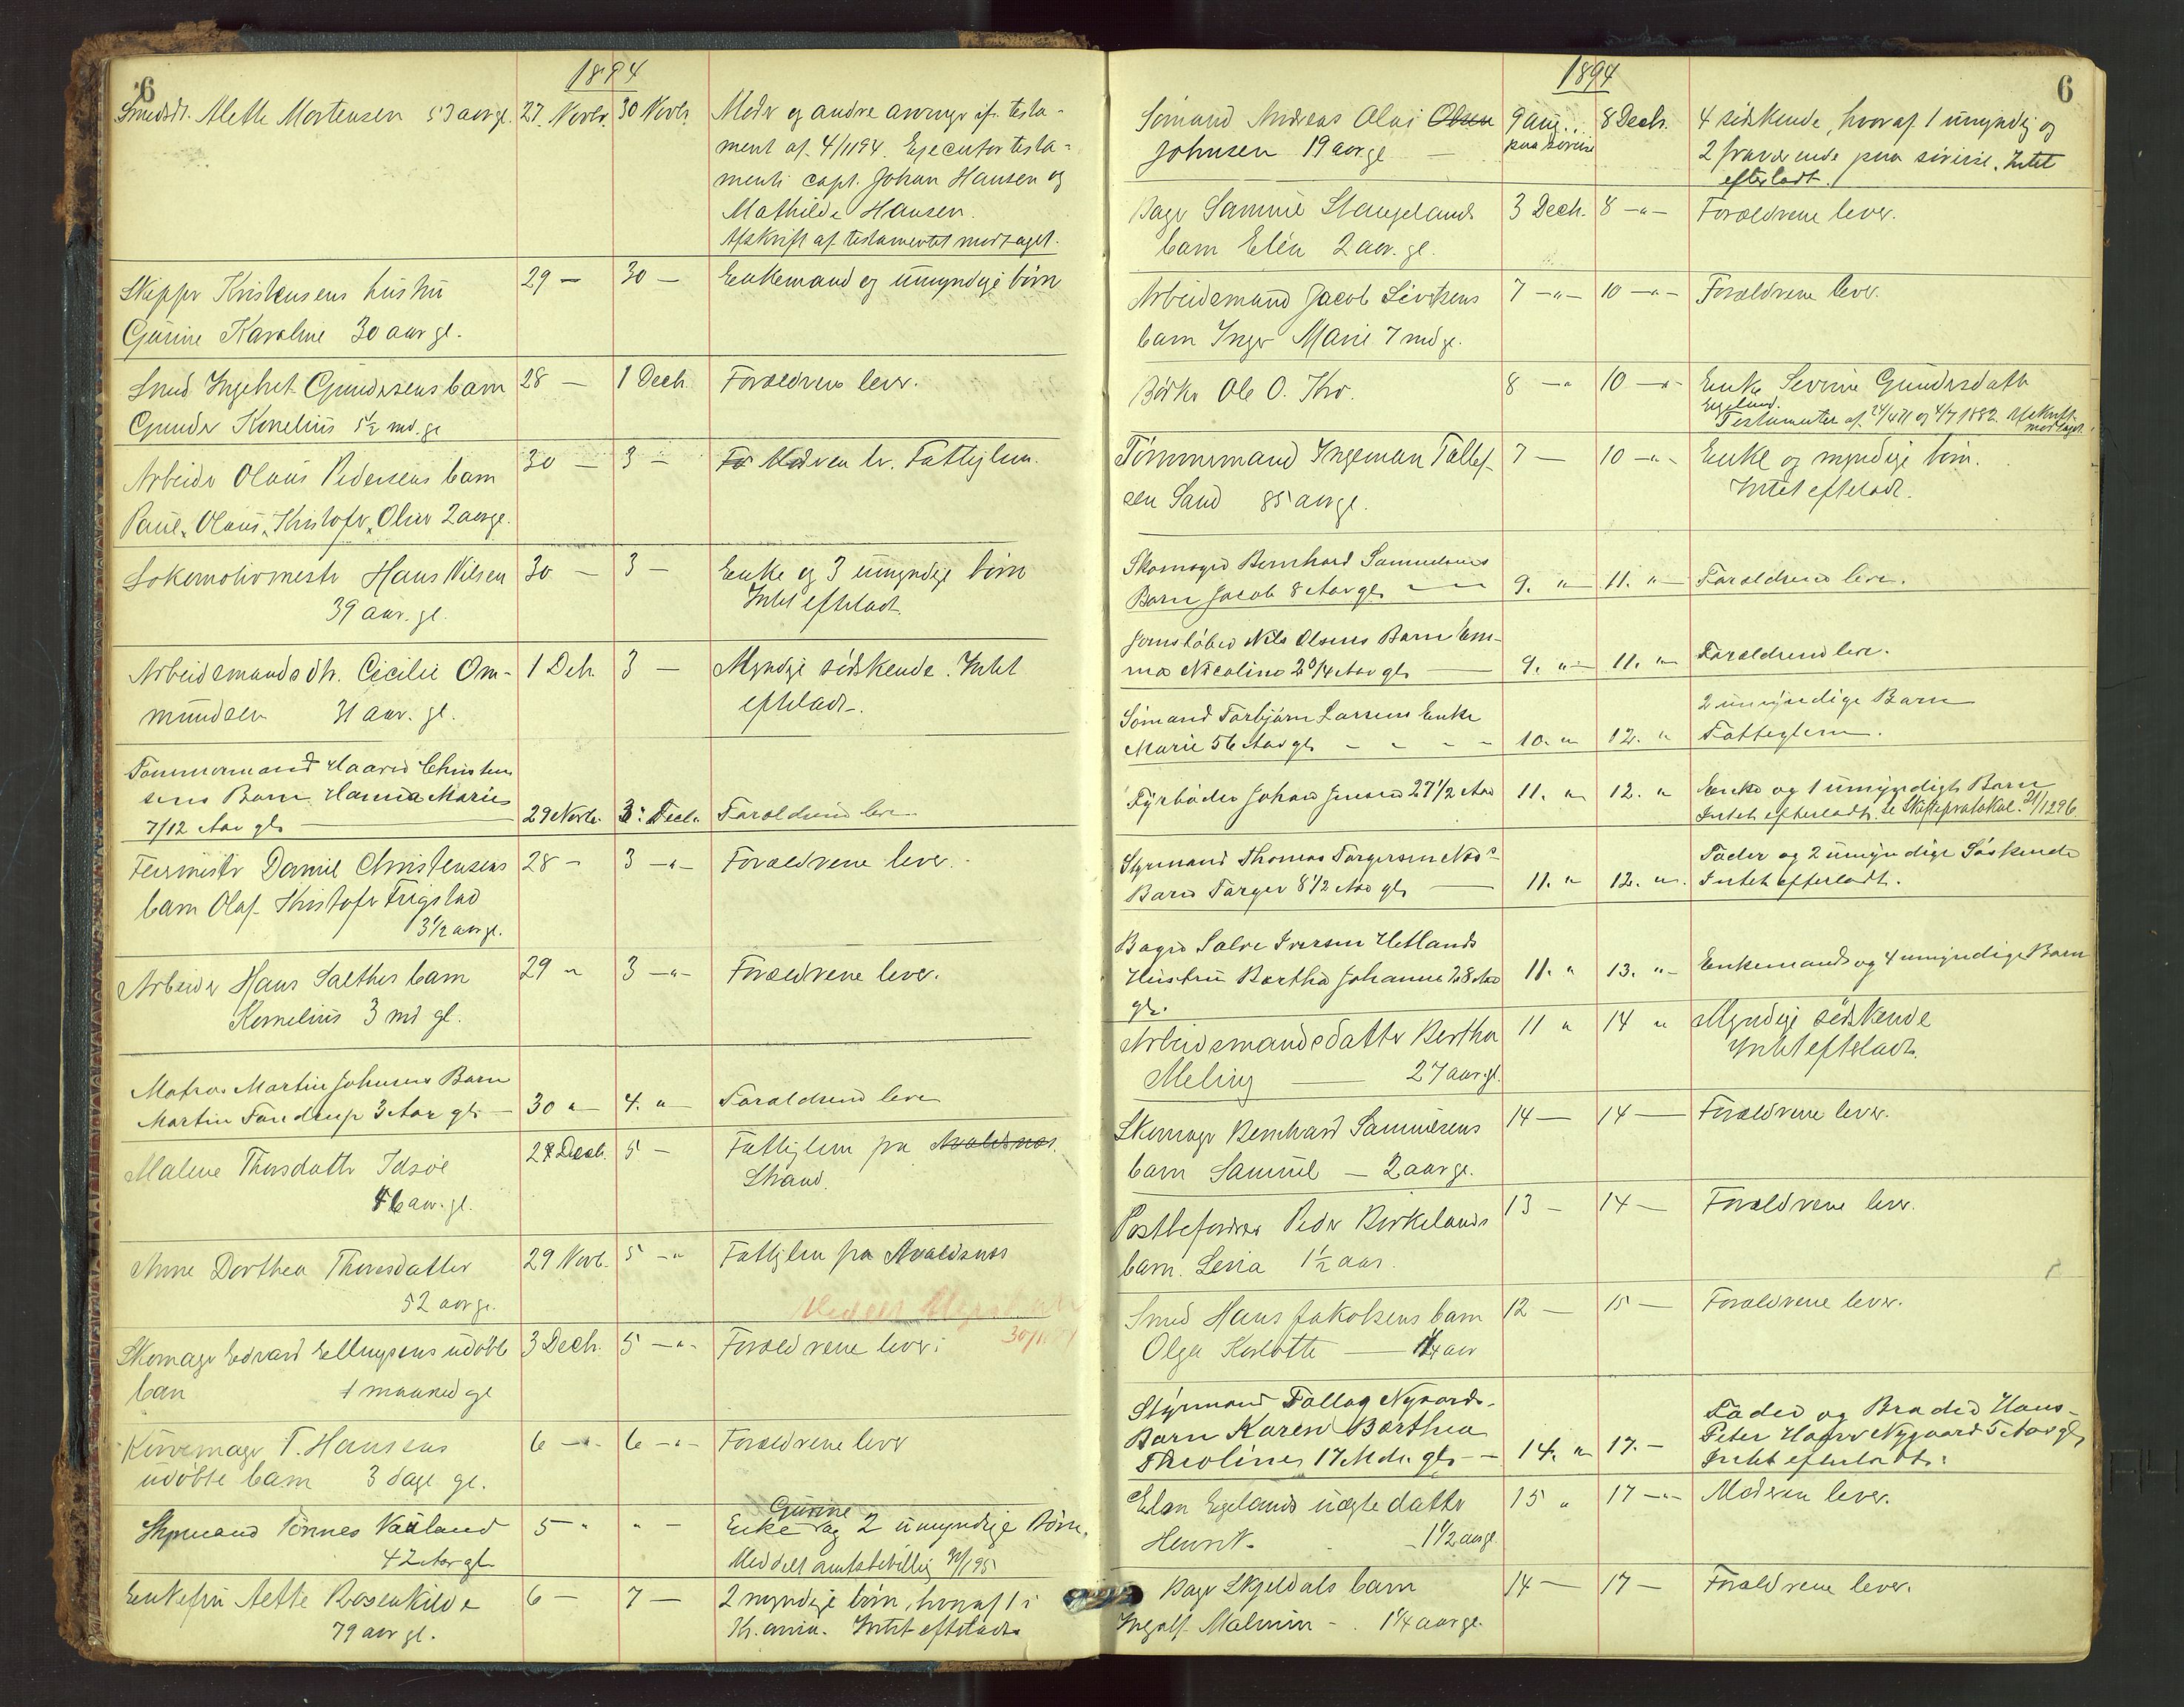 6
1894
Smedsdt. Alette Mortensen 53 aar gl. 27. Novbr. 30 Novbr. Moder og andre arvinge if. testa-
ment af 4/11 94. Executor testa-
menti capt. Johan Hansen og
Mathilde Hansen.
Afskrift af testamentet modtaget.
Skipper Kristensens hustru 29 — 30 — Enkemand og umyndige börn
Gurine Karoline 30 aar gl.
Smed Ingebret Gundersens barn 28 — 1 Decb. Forældrene lever.
Gunder Kornelius 5 1/2 md. gl
Arbeider Olaus Pedersens barn 30 — 3 — Moderen lever. Fattiglem.
Paul Olaus Kristofer Oliver 2 aar gl.
Lokomotivmester Hans Nilsen 30 — 3 — Enke og 3 umyndige börn
39 aar. gl. Intet efterladt
Arbeidsmandsdtr. Cicilie Om- 1 Decb. 3 — Myndige södskende. Intet
mundsen 31 aar. gl. efterladt.
Tömmermand Haavar Christen
sens Barn Hanna Marie 29 Novbr. 3. Decb. Forældrene lever
7/12 Aar gl.
Daniel Christensens 28 — 3 —"— Forældrene lever.
barn Olaf Kristofer Frigstad
3 1/2 aar gl.
Arbeider Hans Salthes barn 29 " 3 —"— Forældrene lever.
Kornelius 3 md gl.
Matros Martin Johnsens Barn
Martin Tandrup 3 Aar gl. — 30 " 4. " Forældrene lever
Malene Thorsdatter Idsöe 27 Decb. 5 — Fattiglem pa Avaldsnes.
56 aar. gl. Strand.
Anne Dorthea Thorsdatter 29 Novb. 5 —" Fattiglem pa Avaldsnes
52 aar gl.
Skomager Edvard Ellingsens udöbte 3 Decb. 5 —"— Forældrene lever.
barn 1 maaned gl
Kurvemager T. Hansens 6 —"— 6 —"— Forældrene lever
udöbte barn 3 dage gl.
Styrmand Tönnes Vaaland 5 " " — Enke Gurine og 2 umyndige Börn.
42 Aar gl Meddelt amtsbevilling
Enkefru Aette Rosenkilde 6 — 7 — 2 myndige börn, hvoraf 1 i
79 aar gl. Kr.ania. Intet efterladt
6
1894
Sömand Andreas Olai Olsen 9 aug. 8 Decb. 4 södskende, hvoraf 1 umyndig og
Johnsen 19 aar gl — paa söreise 2 fraværende paa söreise. Intet
efterladt.
Bager Samuel Stangelands 3 Decb. 8 —"— Forældrene lever.
barn Elén 2 aar. gl.
Arbeidsmand Jacob Sivertsens 7 —"— 10 —"— Forældrene lever.
barn Inger Marie 7 md gl.
Ole O. 8 —" 10 —"— Enke Serine Gundersdatter
Egelund.
Testamenter af og 4/7 1882. Afskrift
modtaget.
Tömmermand Ingeman Tollef- 7 — 10 —"— Enke og myndige börn.
sen Sand 85 aar gl. Intet efterladt.
Skomager Bernhard Samuelsens
Barn Jacob 8 Aar gl. — 9. " 11. " Forældrene lever.
Jernstöber Nils Olsens Barn Em-
ma Nicoline 2 3/4 Aar gl. — 9. " 11. " Forældrene lever.
Sömand Torbjörn Larsens Enke 2 umyndige Barn
Marie 56 Aar gl. 10. " 12. " Fattiglem.
Fyrböder Johan Jensen 27 1/2 Aar 11. " 12. " Enke og 1 umyndigt Barn
Intet efterladt. Se Skifteprotokol. 21/12 96.
Styrmand Thomas Torgersen Næs' Fader og 2 umyndige Söskende
Barn Torger 8 1/2 Aar gl. — 11. " 12. " Intet efterladt.
Bager Salve Iversen Hetlands
Hustru Bertha Johanne 28 Aar 11. " 13. " Enkemand og 4 umyndige Barn
gl.
Arbeidsmandsdatter Bertha 11 " 14 " Myndige södskende
Meling — 27 aar gl. Intet efterladt.
Skomager Bernhard Samuelsens 14 — 14 — Forældrene lever.
barn Samuel — 2 aar gl.
Postbefordrer Peder Birkelands 13 — 14 — Forældrene lever.
barn. Lena 1 1/2 aar.
Smed Hans Jakobsens barn 12 — 15 — Forældrene lever.
Olga Karlotte — 1/4 aar
Styrmand Tallag Nygaards Fader og Broder Hans
Barn Karen Barthea Peter Nygaard 5 Aar gl,
Theoline 17 Mdr. gl. — 14. " 17. — Intet efterladt.
Elen Egelands uægte datter 15 " 17 —"— Moderen lever.
Henrik. 1 1/2 aar gl
Bager Skjeldals barn 14 — 17 — Forældrene lever.
Ingolf Malmin — 1 1/4 aar gl.